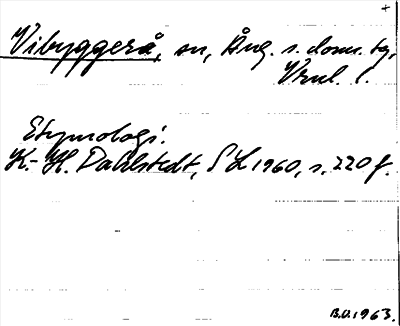 +
Vibyggerå, sn, Ång. s. dom. tg,
Vrnl. l.
Etymologi.
K.-H. Dahlstedt, SL 1960, s. 220 f.
B.U. 1963.